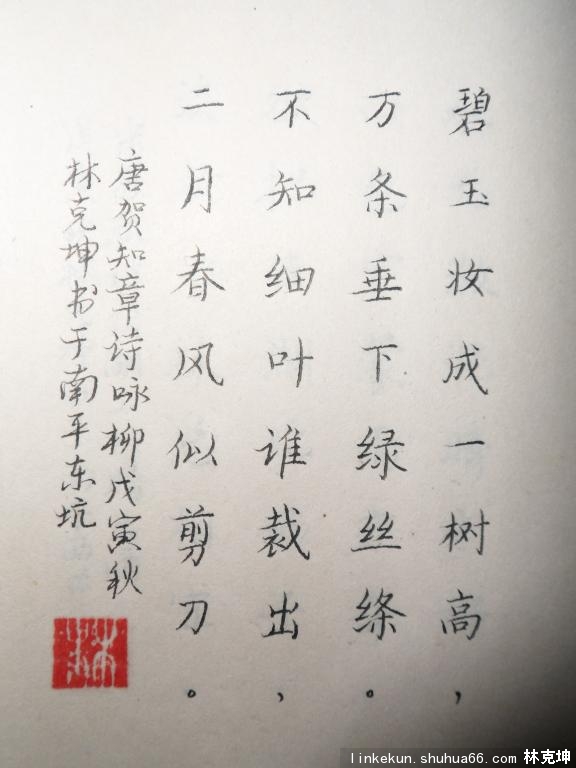 碧玉妆成一树高，
万条垂下绿丝绦。
不知细叶谁裁出，
二月春风似剪刀。
唐贺知章诗咏柳戊寅秋
林克坤书于南平东坑
linkekun.shuhua66.com 林克坤